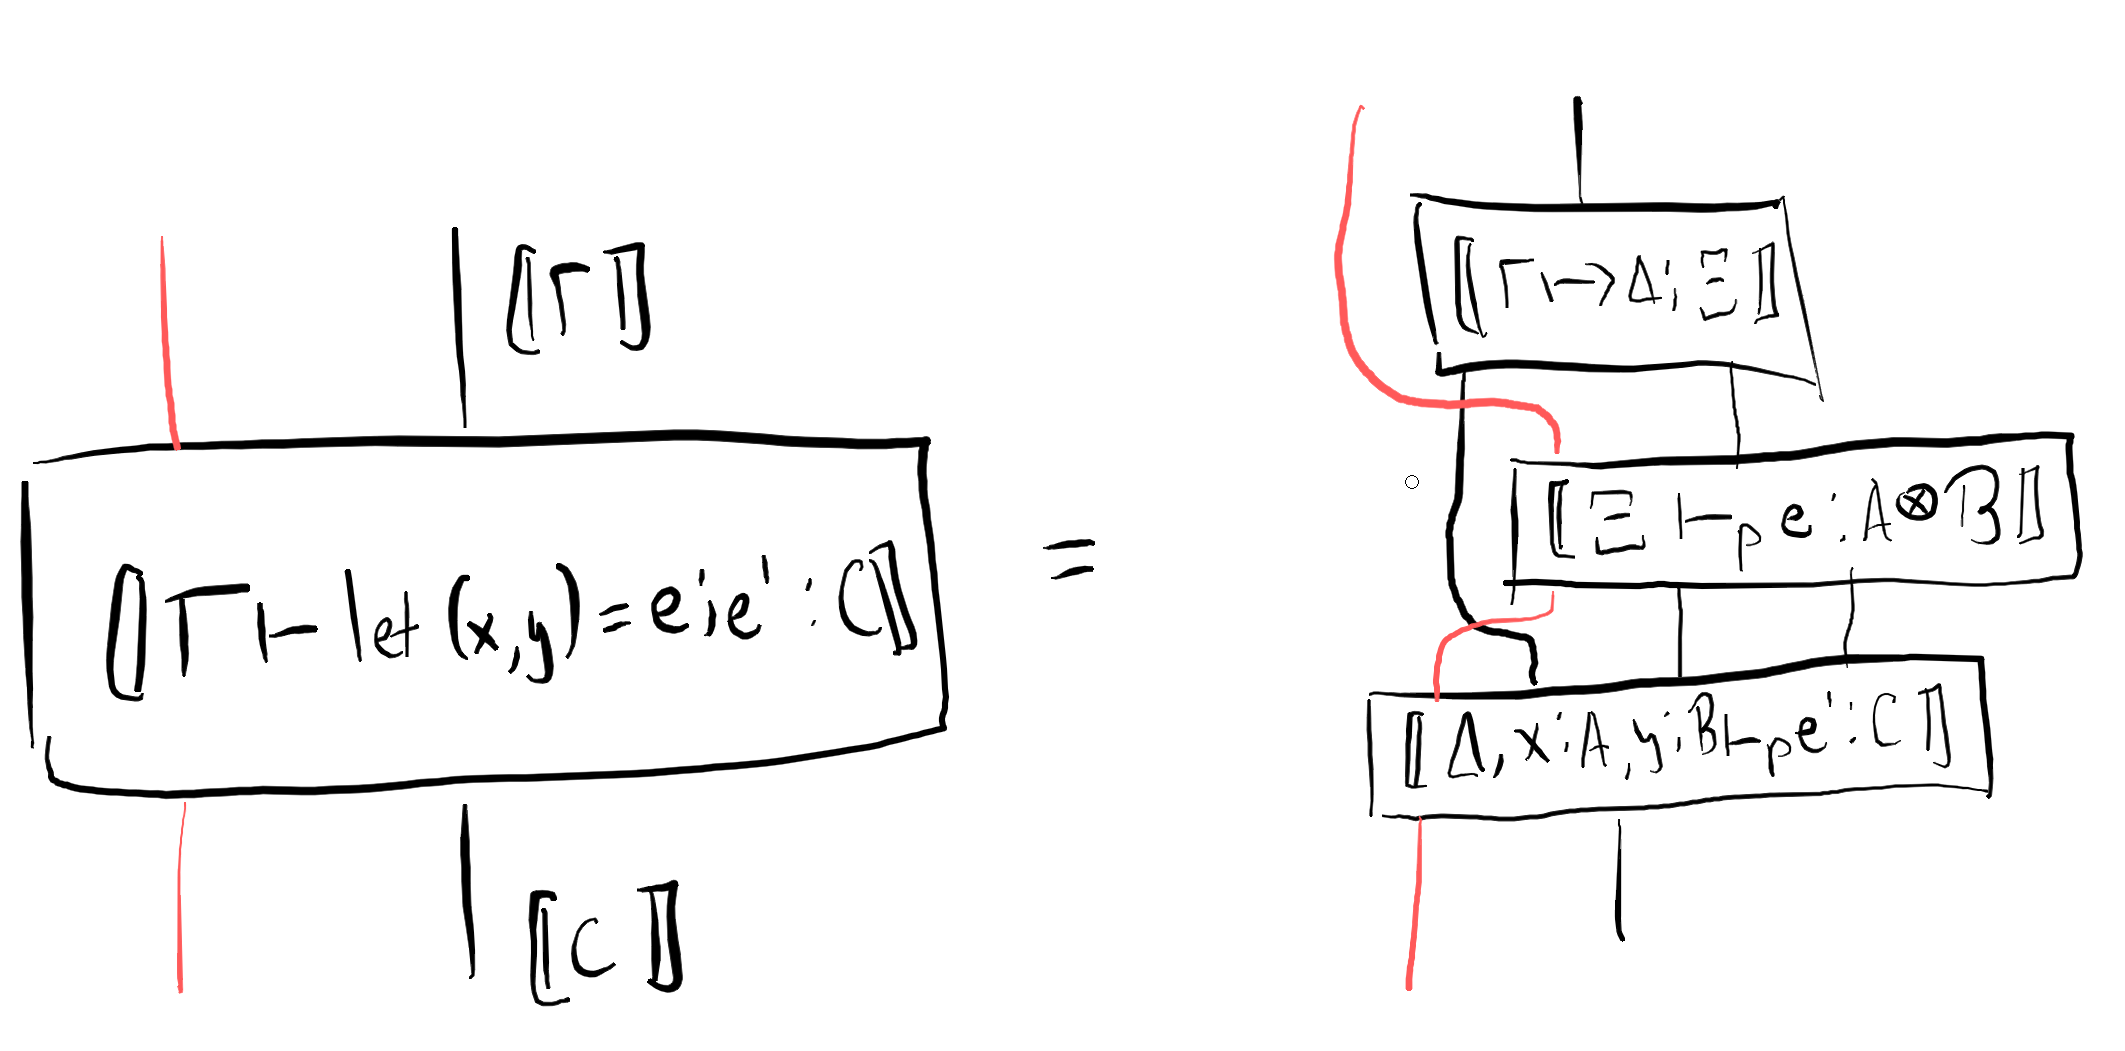 ⟦Γ⟧
⟦Γ ⊢ let (x,y) = e; e' : C⟧
⟦C⟧
=
⟦Γ ↦ Δ; Ξ⟧
⟦Ξ ⊢p e : A ⊗ B⟧
⟦Δ, x : A, y : B ⊢p e' : C⟧